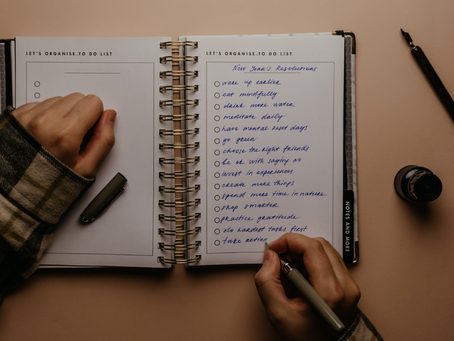 LET'S ORGANISE.TO DO LIST
LET'S ORGANISE.TO DO LIST
New Year's Resolutions
wake up earlier
eat mindfully
drink more water
meditate daily
have mental rest days
go green
choose the right friends
be ok with saying no
invest in experiences
create more things
spend more time in nature
shop smarter
practice gratitude
do hardest tasks first
take action
NOTES AND MORE